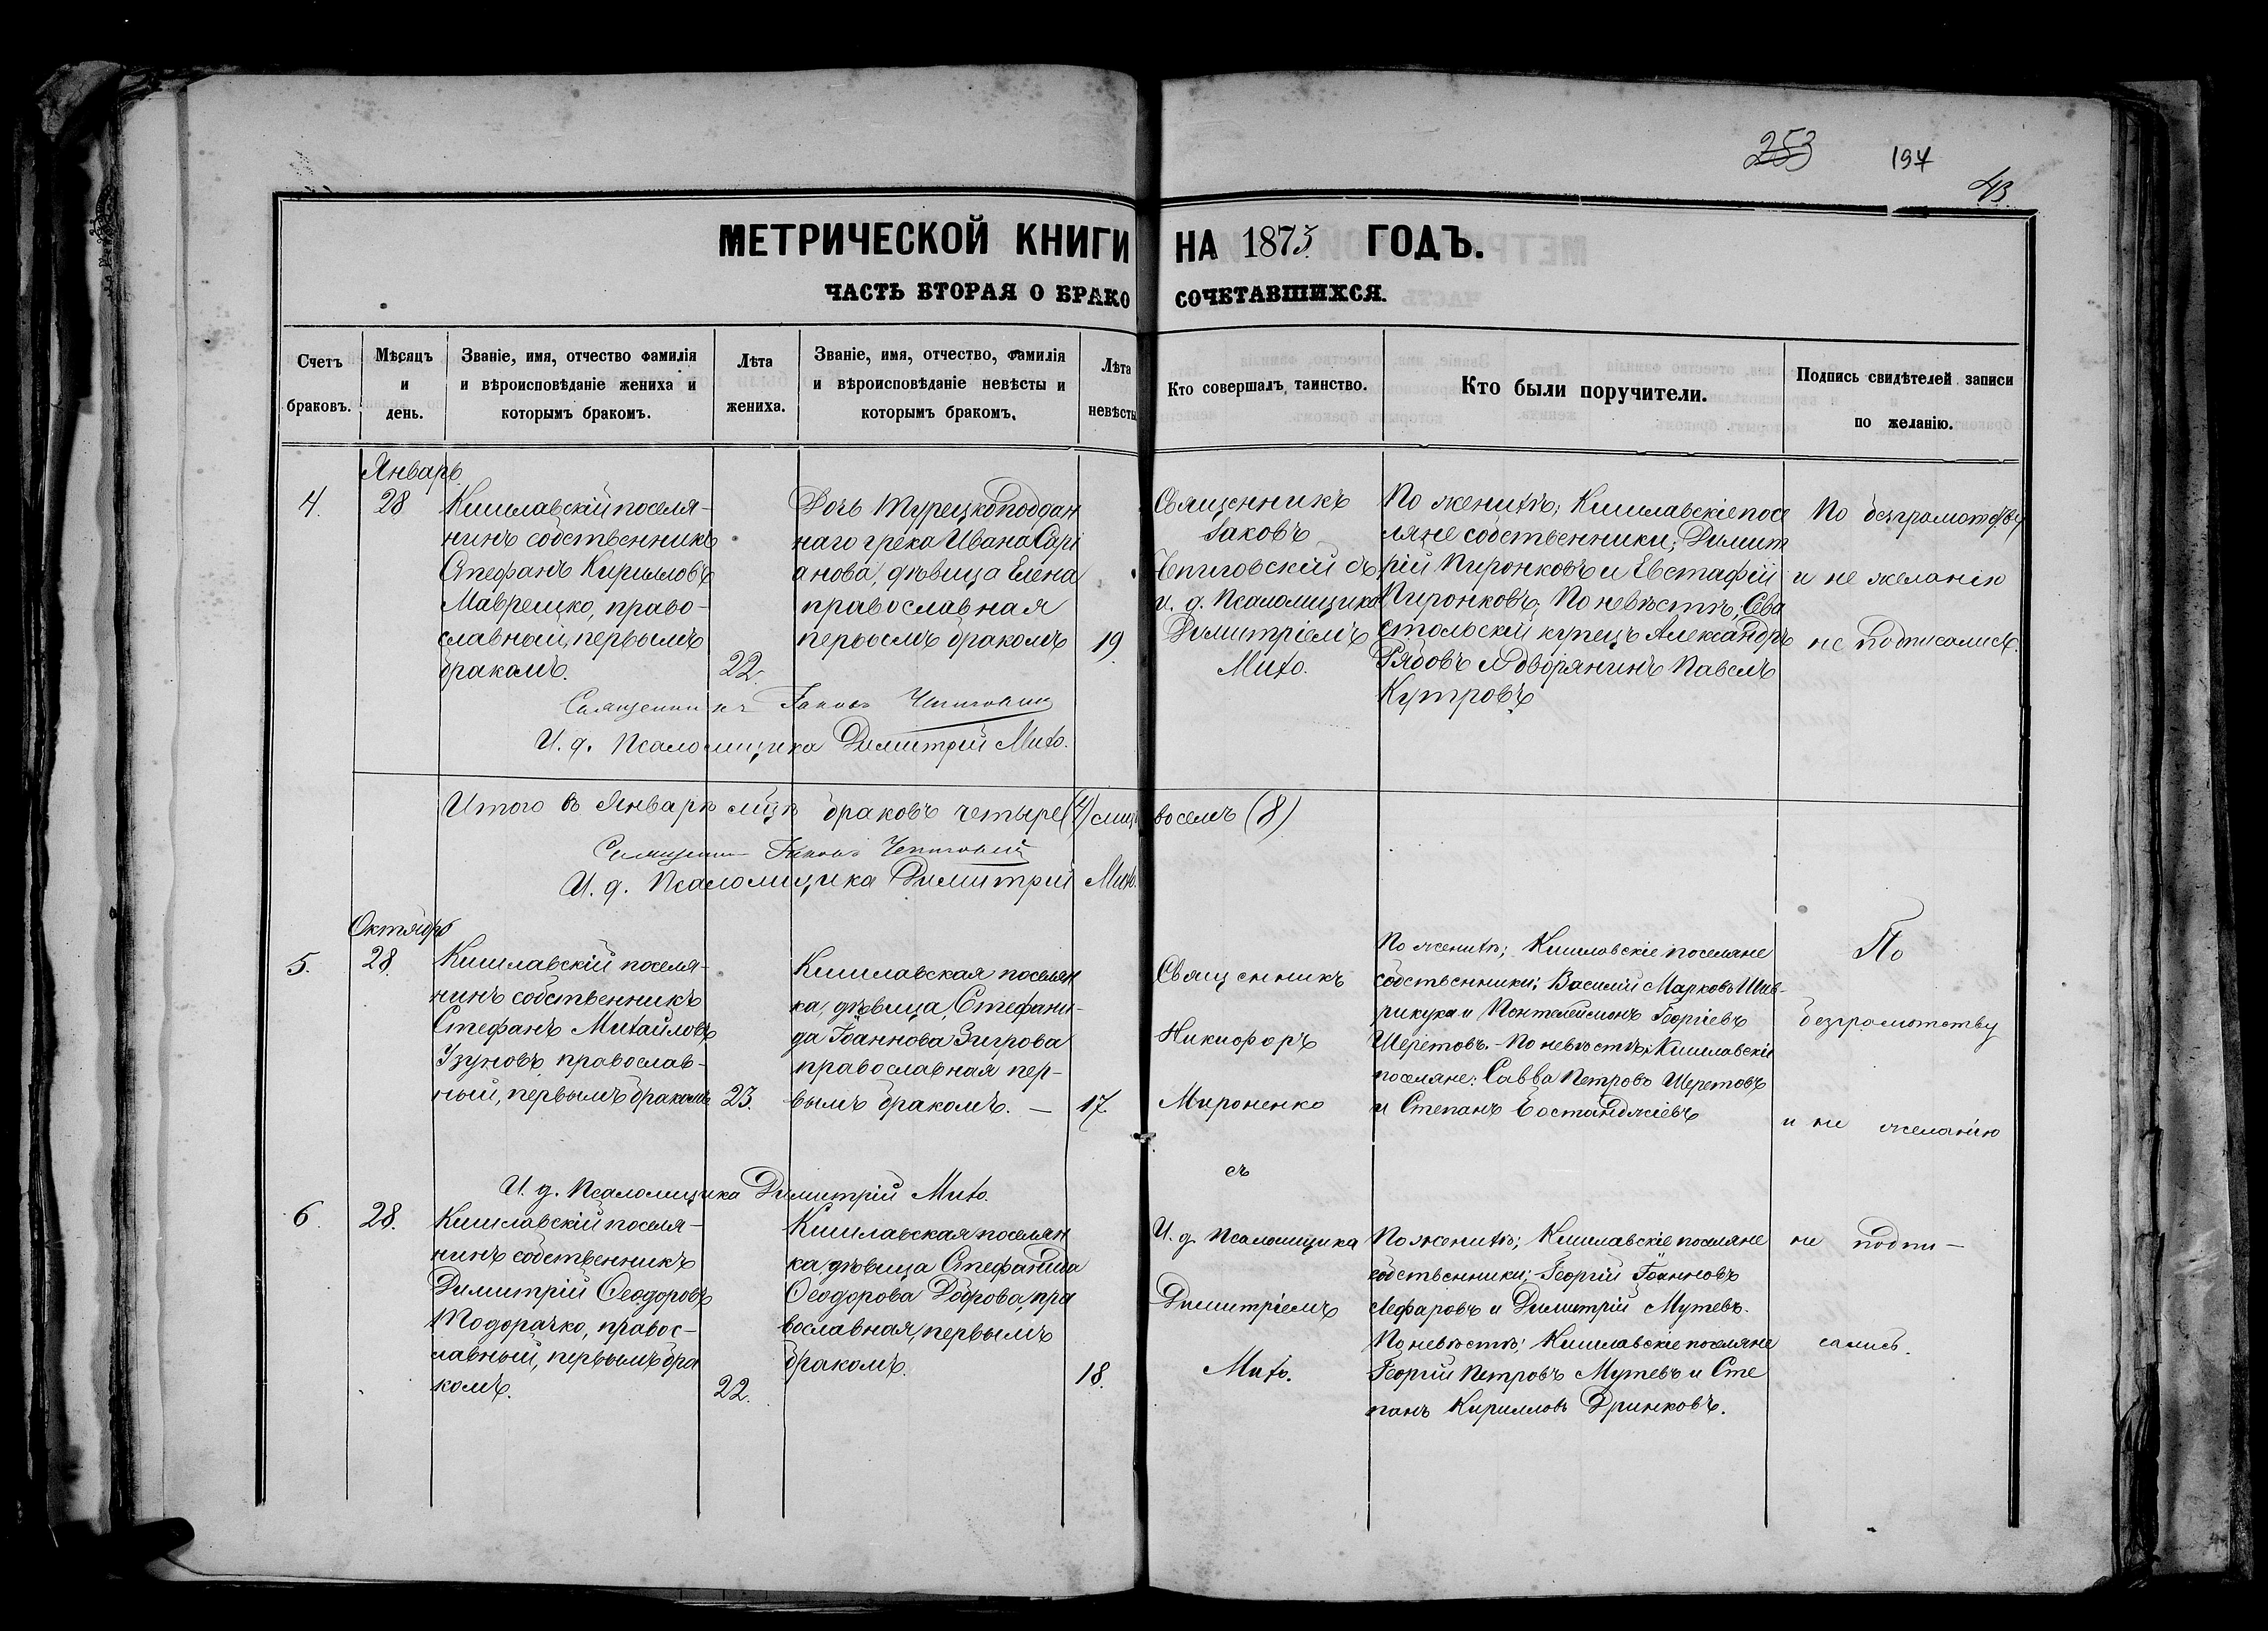 253 197 43
МЕТРИЧЕСКОЙ КНИГИ НА 1875 ГОДЪ.
ЧАСТЬ ВТОРАЯ О БРАКОСОЧЕТАВШИХСЯ.
Счетъ браковъ.
Мѣсяцъ и день.
Званіе, имя, отчество фамилія и вѣроисповѣданіе жениха и которымъ бракомъ.
Лѣта жениха.
Званіе, имя, отчество, фамилія и вѣроисповѣданіе невѣсты и которымъ бракомъ.
Лѣта невѣсты
Кто совершалъ таинство.
Кто были поручители.
Подпись свидѣтелей записи по желанію.
Январь
4.
28
Кишлавскій поселя-
нинъ собственникъ
Стефанъ Кирилловъ
Маврешко, право-
славный, первымъ
бракомъ.
22.
Дочь Турецкоподдан
наго грека Ивана Сарі
анова, дѣвица Елена
православная
первымъ бракомъ
19.
Священникъ
Іаковъ
Чепиговскій съ
и. д. Псаломщика
Димитріемъ
Михо.
По женихѣ; Кишлавскіе посе
ляне собственники; Димит
рій Пиронковъ и Евстафій
Пиронковъ; По невѣстѣ; Сева
стопольскій купецъ Александръ
Рябовъ и дворянинъ Павелъ
Кутровъ
По безграмотству
и не желанію
не подписались.
Священникъ Іаковъ Чепиговскій
И. д. Псаломщика Димитрій Михо.
Итого въ Январѣ мцѣ браковъ четыре (4) лицъ восемь (8)
Священникъ Іаковъ Чепиговскій
И. д. Псаломщика Димитрій Михо.
Октябрь
5.
28.
Кишлавскій поселя-
нинъ собственникъ
Стефанъ Михайловъ
Узуновъ, православ-
ный, первымъ бракомъ
23.
Кишлавская поселян
ка, дѣвица, Стефани-
да Іоаннова Зигрова
православная пер-
вымъ бракомъ. —
17.
Священникъ
Никифоръ
Мироненко
съ
По женихѣ; Кишлавскіе поселяне
собственники; Василій Марковъ
и Пантелеймонъ Георгіевъ
Шеретовъ. - По невѣстѣ; Кишлавскіе
поселяне: Савва Петровъ Шеретовъ
и Степанъ Бостанджіевъ
По
безграмотству
и не желанію
И. д. Псаломщика Димитрій Михо.
6.
28.
Кишлавскій поселя-
нинъ собственникъ
Димитрій Ѳеодоровъ
Тодорачко, правос-
лавный, первымъ бра
комъ.
22.
Кишлавская поселян
ка, дѣвица Стефанида
Ѳеодорова Доброва, пра
вославная, первымъ
бракомъ.
18.
И. д. Псаломщика
Димитріемъ
Михо.
По женихѣ; Кишлавскіе поселяне
собственники; Георгій Іоанновъ
Лефаровъ и Димитрій Мутевъ.
По невѣстѣ; Кишлавскіе поселяне
Георгій Петровъ Мутевъ и Сте
панъ Кирилловъ Дринковъ.
не подпи-
сались.